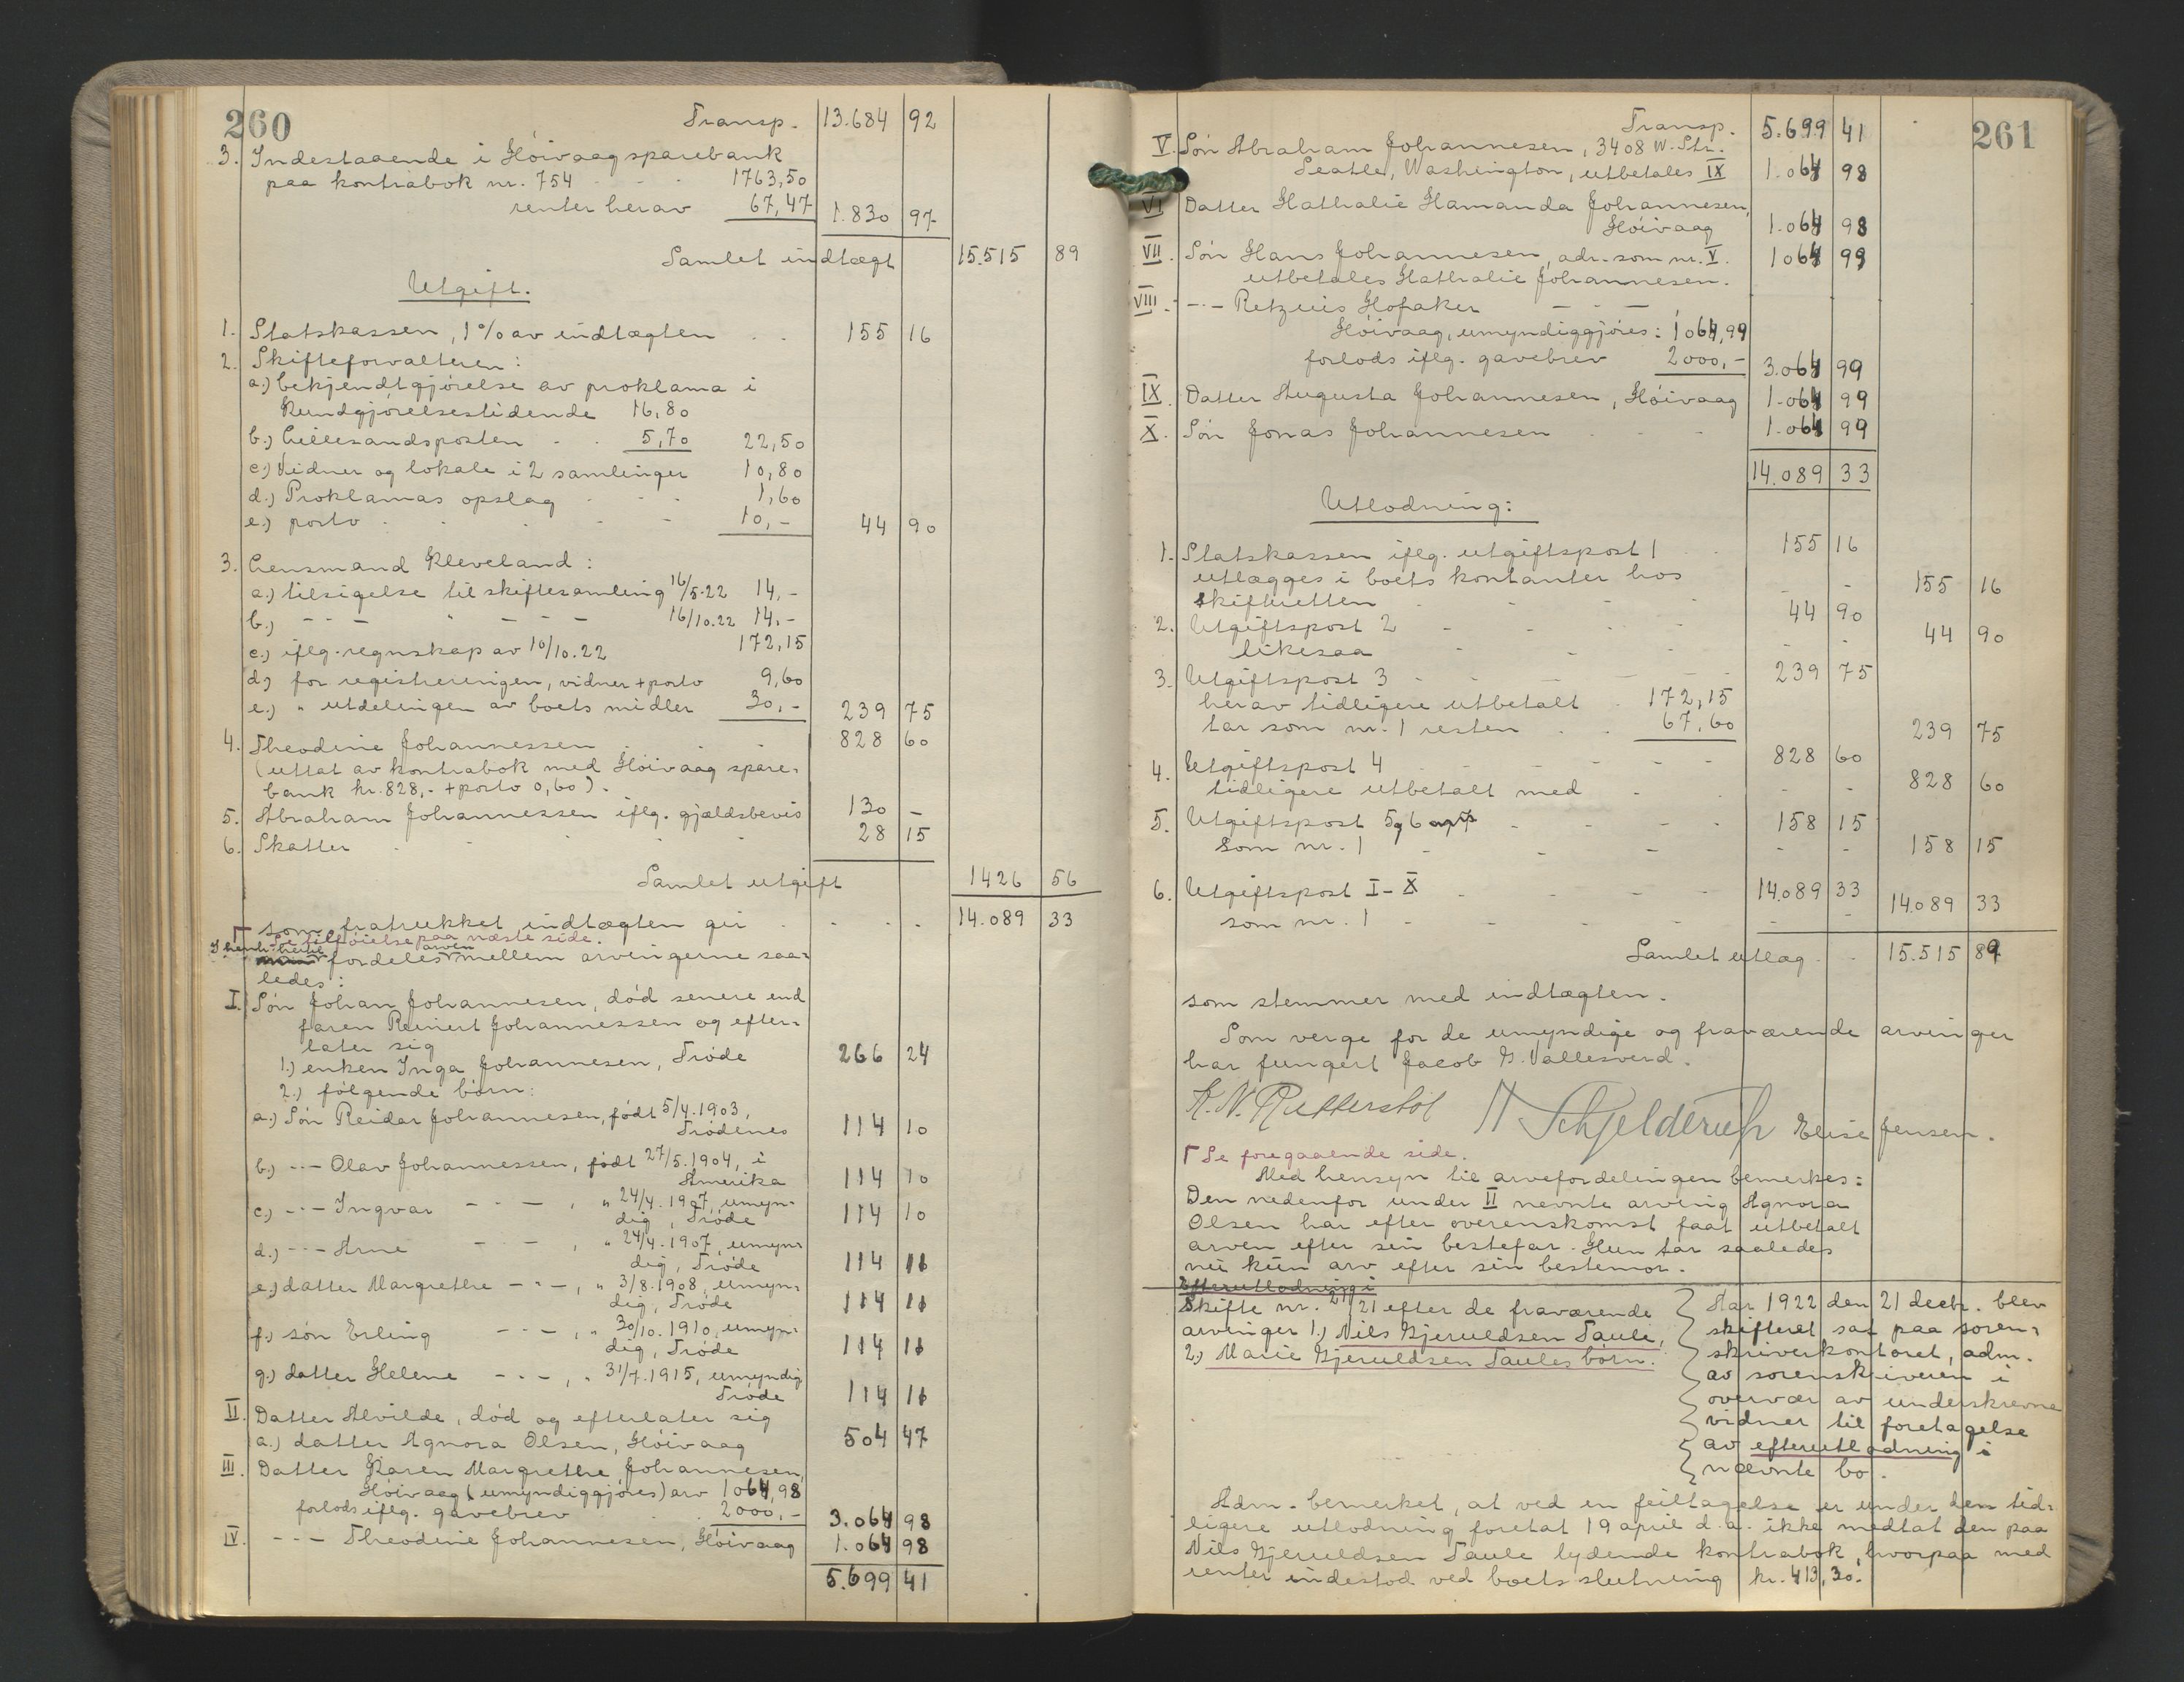 260
Transp. 13.684 92
3. Indestaaende i Høivaag sparebank
paa kontrabok nr. 754 - - 1763,50
renter herav 67,47 1.830 97
Samlet indtægt 15.515 89
Utgift.
1. Statskassen, 1% av indtægten . . 155 16
2. Skifteforvalteren:
a.) bekjendtgjørelse av proklama i
Kundgjørelsestidende 16,80
b.) Lillesandsposten - . 5,70 22,50
c.) Vidner og lokale i 2 samlinger 10,80
d.) Proklamas opslag - - - 1,60
e.) porto . . . - - 10,- 44 90
3. Lensmand Kleveland:
a.) tilsigelse til skiftesamling 16/5.22 14,-
b.) - - - " - - - 16/10.22 14,-
c.) iflg. regnskap av 10/10.22 172,15
d.) for registreringen, vidner + porto 9,60
e.) " utdelingen av boets midler 30,- 239 75
4. Theodine Johannessen . . . 828 60
(uttat av kontrabok med Høivaag spare-
bank kr. 828,- + porto 0,60).
5. Abraham Johannessen iflg. gjældsbevis 130 -
6. Skatter . - . - 28 15
Samlet utgift 1426 56
som fratrukket indtægten gir . - . . 14.089 33
Γ Se tilføielse paa næste side.
I henh. hertil fordeles arven mellem arvingerne saa-
ledes:
I. Søn Johan Johannesen, død senere end
faren Reinert Johannessen og efter-
later sig
1.) enken Inga Johannesen, Trøde 266 24
2.) følgende børn:
a.) Søn Reidar Johannesen, født 5/4.1903,
Trødenes 114 10
b.) -"- Olav Johannessen, født 27/5.1904, i
Amerika 114 10
c.) -"- Ingvar - - - , " 24/4.1907, umyn-
dig, Trøde 114 10
d.) -"- Arne - - - , " 24/4.1907, umyn-
dig, Trøde 114 11
e.) datter Margrethe - " -, " 3/8.1908, umyn-
dig, Trøde 114 11
f.) søn Erling - - - , " 30/10.1910, umyn-
dig, Trøde 114 11
g.) datter Helene - - - , " 31/7.1915, umyndig
Trøde 114 11
II. Datter Alvilde, død og efterlater sig
a.) datter Agnora Olsen, Høivaag 504 47
III. Datter Karen Margrethe Johannesen,
Høivaag (umyndiggjøres) arv 1064,98
forlods iflg. gavebrev . . 2000,- 3.064 98
IV. - - - Theodine Johannesen, Høivaag 1.064 98
5.699 41
261
Transp. 5.699 41
V. Søn Abraham Johannesen, 3408 W. Str.
Seatle, Washington, utbetales IX 1.064 98
VI Datter Hathalie Hamanda Johannesen,
Høivaag 1.064 98
VII. Søn Hans Johannesen, adr. som nr. V. 1064 99
utbetales Hathalie Johannesen.
VIII. - " - Retzuis Hofaker - - -
Høivaag, umyndiggjøres: 1064,99
forlods iflg. gavebrev 2000,- 3.064 99
IX. Datter Augusta Johannesen, Høivaag 1.064 99
X. Søn Jonas Johannesen - - - 1.064 99
14.089 33
Utlodning:
1. Statskassen iflg. utgiftspost 1 . . 155 16
utlægges i boets kontanter hos
skifteretten - - - - - - 155 16
2. Utgiftspost 2 - - - - 44 90
likesaa - - - - - 44 90
3. Utgiftspost 3 - - - - - 239 75
herav tidligere utbetalt . 172,15
tar som nr. 1 resten . . 67,60 239 75
4. Utgiftspost 4 - - - - - 828 60
tidligere utbetalt med . - - - 828 60
5. Utgiftspost 5 og 6 - - - - 158 15
som nr. 1 - - - - - 158 15
6. Utgiftspost I - X - - - - 14.089 33
som nr. 1 - - - - - - 14.089 33
Samlet utlæg . - 15.515 89
som stemmer med indtægten.
Som verge for de umyndige og fraværende arvinger
har fungert Jacob G. Vallesverd.
Schjelderup Elise Jensen.
Γ Se foregaaende side.
Med hensyn til arvefordelingen bemerkes:
Den nedenfor under II nevnte arving Agnora
Olsen har efter overenskomst faat utbetalt
arven efter sin bestefar. Hun tar saaledes
nu kun arv efter sin bestemor.
Efterutlodning i
Skifte nr. 21 efter de fraværende
arvinger 1.) Nils Gjeruldsen Taule,
2.) Marie Gjeruldsen Taules børn.
Aar 1922 den 21 decbr. blev
skifteret sat paa soren-
skriverkontoret, adm.
av sorenskriveren i
overvær av underskrevne
vidner til foretagelse
av efterutlodning i
nævnte bo.
Adm. bemerket, at ved en feiltagelse er under den tid-
ligere utlodning foretat 19 april d.a. ikke medtat den paa
Nils Gjeruldsen Taule lydende kontrabok, hvorpaa med
renter indestod ved boets slutning kr. 413,30.